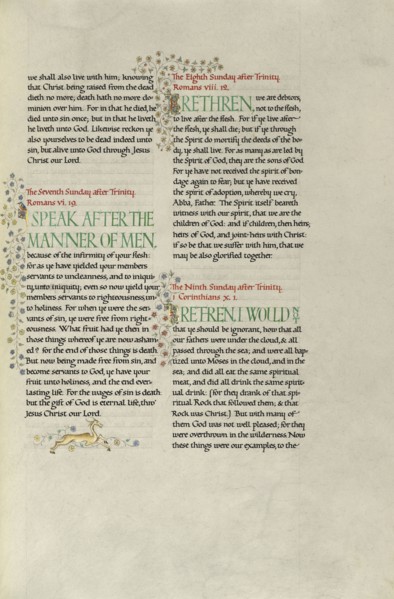 we shall also live with him; knowing
that Christ being raised from the dead
dieth no more; death hath no more do-
minion over him. For in that he died, he
died unto sin once; but in that he liveth,
he liveth unto God. Likewise reckon ye
also yourselves to be dead indeed unto
sin, but alive unto God through Jesus
Christ our Lord.
The Seventh Sunday after Trinity.
Romans vi. 19.
I SPEAK AFTER THE
MANNER OF MEN,
because of the infirmity of your flesh:
for as ye have yielded your members
servants to uncleanness, and to iniqui-
ty, unto iniquity; even so now yield your
members servants to righteousness, un-
to holiness. For when ye were the ser-
vants of sin, ye were free from right-
eousness. What fruit had ye then in
those things whereof ye are now asham-
ed? for the end of those things is death.
But now being made free from sin, and
become servants to God, ye have your
fruit unto holiness, and the end ever-
lasting life. For the wages of sin is death:
but the gift of God is eternal life, thro'
Jesus Christ our Lord.
The Eighth Sunday after Trinity.
Romans viii. 12.
BRETHREN, we are debtors,
not to the flesh,
to live after the flesh. For if ye live after
the flesh, ye shall die; but if ye through
the Spirit do mortify the deeds of the bo-
dy, ye shall live. For as many as are led by
the Spirit of God, they are the sons of God.
For ye have not received the spirit of bon-
dage again to fear; but ye have received
the spirit of adoption, whereby we cry,
Abba, Father. The Spirit itself beareth
witness with our spirit, that we are the
children of God: and if children, then heirs;
heirs of God, and joint-heirs with Christ:
if so be that we suffer with him, that we
may be also glorified together.
The Ninth Sunday after Trinity.
I Corinthians x. 1.
BRETHREN, I WOULD
that ye should be ignorant, how that all
our fathers were under the cloud, & all
passed through the sea; and were all bap-
tized unto Moses in the cloud, and in the
sea; and did all eat the same spiritual
meat, and did all drink the same spirit-
ual drink: (for they drank of that spi-
ritual Rock that followed them; & that
Rock was Christ.) But with many of
them God was not well pleased; for they
were overthrown in the wilderness. Now
these things were our examples, to the